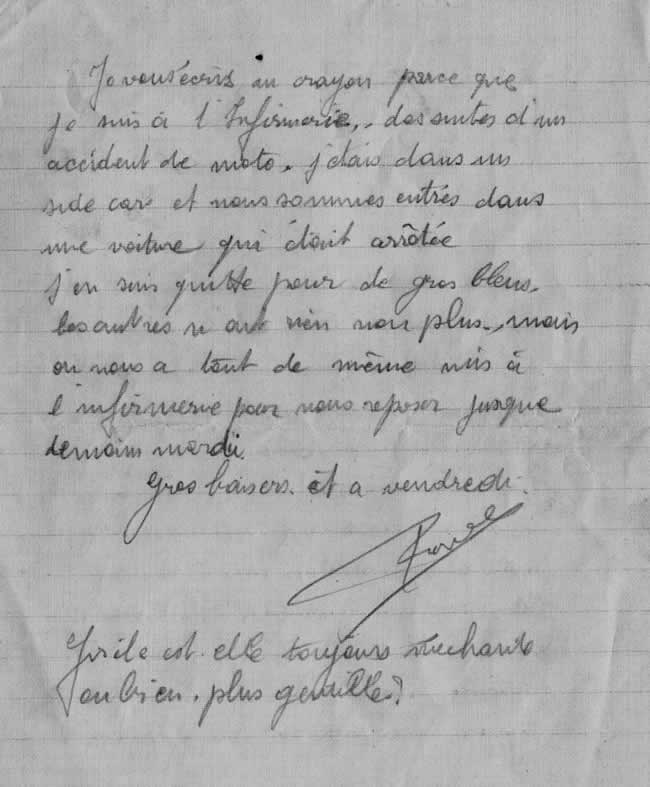 Je vous écris au crayon parce que
je suis à l'Infirmerie, des suites d'un
accident de moto. j'étais dans un
side care et nous sommes entrés dans
une voiture qui était arrêtée
j'en suis quitte pour de gros bleus.
les autres n'ont rien non plus, mais
on nous a tout de même mis à
l'infirmerie pour nous reposer jusque
demain mardi
Gros baisers. et a vendredi.
est-elle toujours méchante
ou bien. plus gentille?